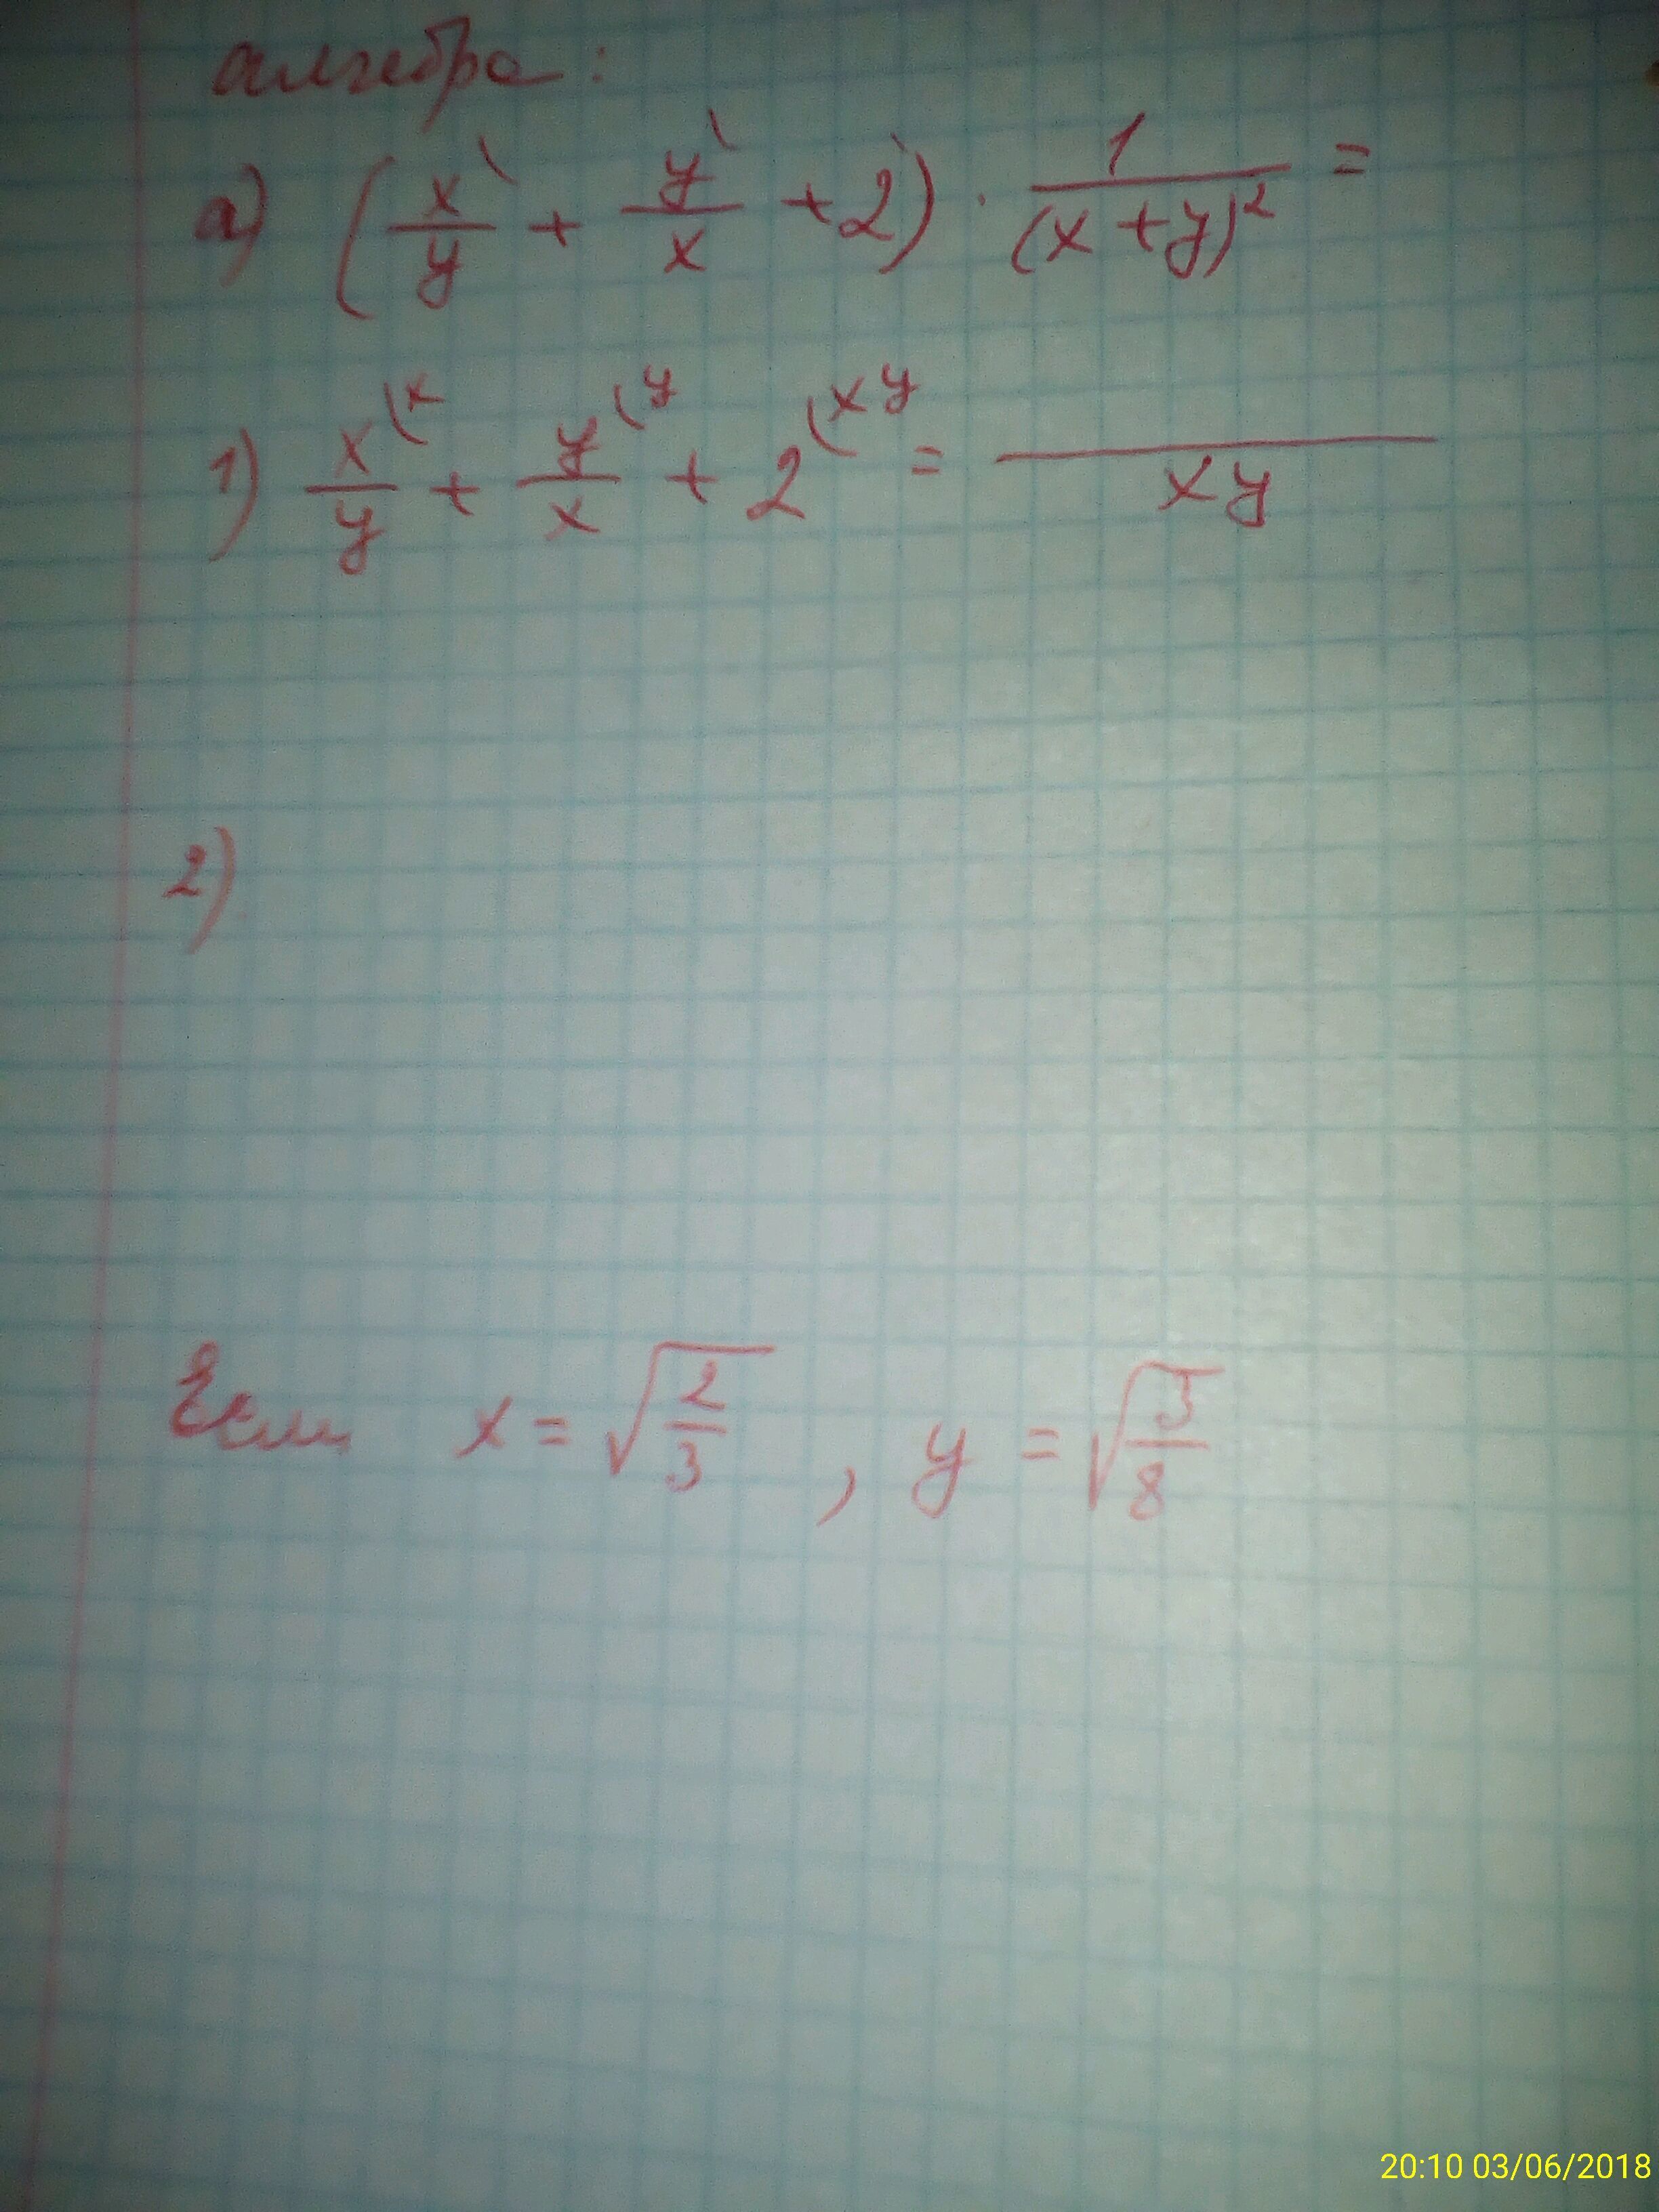 алгебра:
а) (x/y + y/x + 2) · 1/(x+y)² =
1) x/y (x + y/x (y + 2 (xy = /xy
2)
Если x = √2/3 , y = √3/8
20:10 03/06/2018